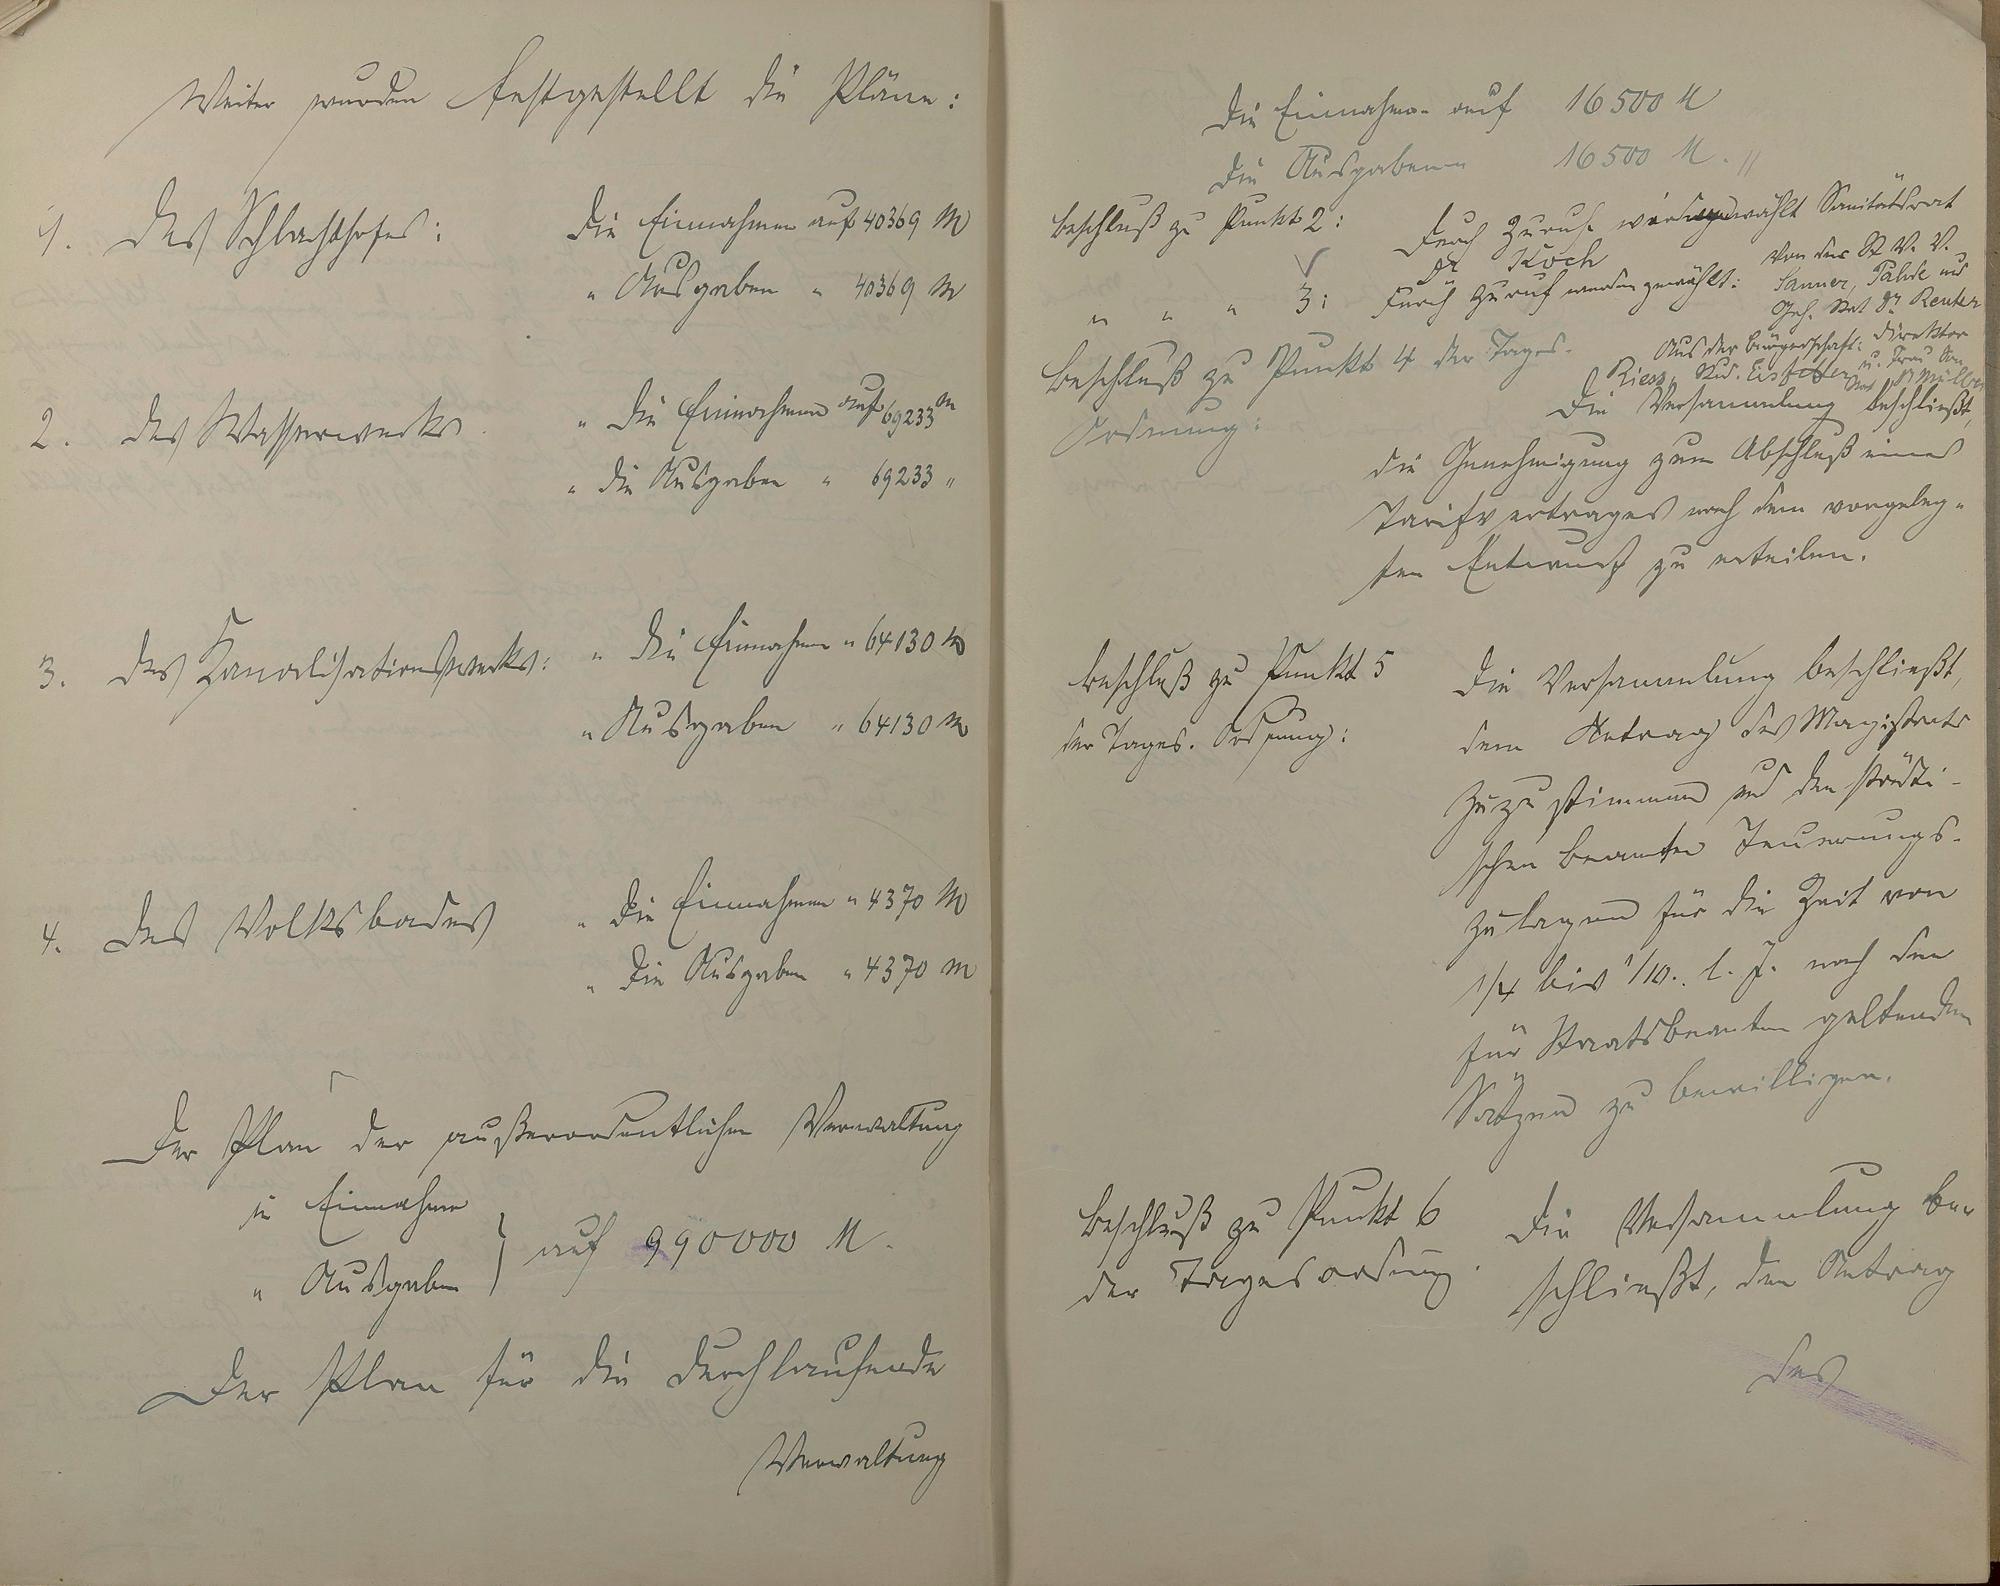 Weiter wurden festgestellt die Pläne:
1. des Schlachthofes: die Einnahmen auf 40369 M
" Ausgaben " 40369 M
2. des Wasserwerks " die Einnahmen auf 69233 M
" die Ausgaben " 69233 "
3. des Kanalisationswerks: " die Einnahmen " 64130 M
" Ausgaben " 64130 M
4. des Volksbades " die Einnahmen " 4370 M
" die Ausgaben " 4370 M
Der Plan der außerordentlichen Verwaltung
in Einnahme
" Ausgaben } auf 990000 M.
Der Plan für die durchlaufende
Verwaltung
die Einnahmen auf 16500 M
die Ausgaben 16500 M.
Beschluß zu Punkt 2: Durch Zuruf wird gewählt Sanitätsrat
Dr Koch
" " " 3: Durch Zuruf werden gewählt: Von der St. V. V.
Sanner, und
Geh. Rat Dr Reuter
Aus der Bürgerschaft: Direktor
Riess, u. Frau
Müller
Beschluß zu Punkt 4 der Tages-
Ordnung: Die Versammlung beschließt,
die Genehmigung zum Abschluß eines
Tarifvertrages nach dem vorgeleg-
ten Entwurf zu erteilen.
Beschluß zu Punkt 5
der Tages-Ordnung: Die Versammlung beschließt,
dem Antrag des Magistrats
zuzustimmen und den städti-
schen Beamten Teuerungs-
zulagen für die Zeit von
1/4 bis 1/10. l. J. nach den
für Staatsbeamten geltenden
Sätzen zu bewilligen.
Beschluß zu Punkt 6
der Tagesordnung. Die Versammlung be-
schließt, den Antrag
des